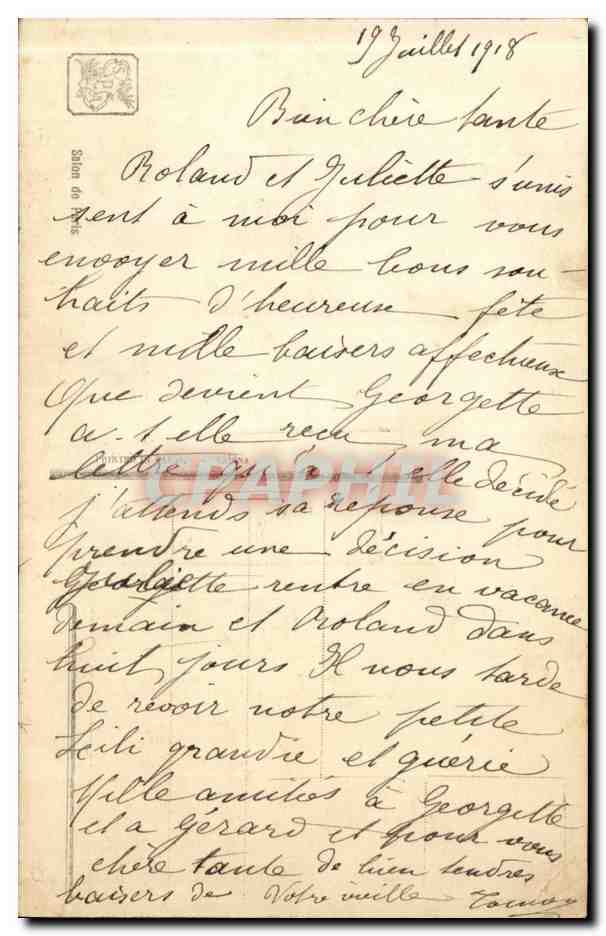 19 Juillet 1918
Salon de Paris
Bien chère tante
Roland et Juliette s'unis
sent à moi pour vous
envoyer mille bons sou-
haits d'heureuse fête
et mille baisers affectueux
Que devient Georgette
a-t-elle reçu ma
lettre qu'a-t-elle décidé
CPAPHIL
j'attends sa réponse pour
prendre une décision
rentre en vacance
demain et Roland dans
huit jours Il nous tarde
de revoir notre petite
Lili grandie et guérie
Mille amitiés à Georgette
et a Gérard et pour vous
chère tante de bien tendres
baisers de Votre vieille